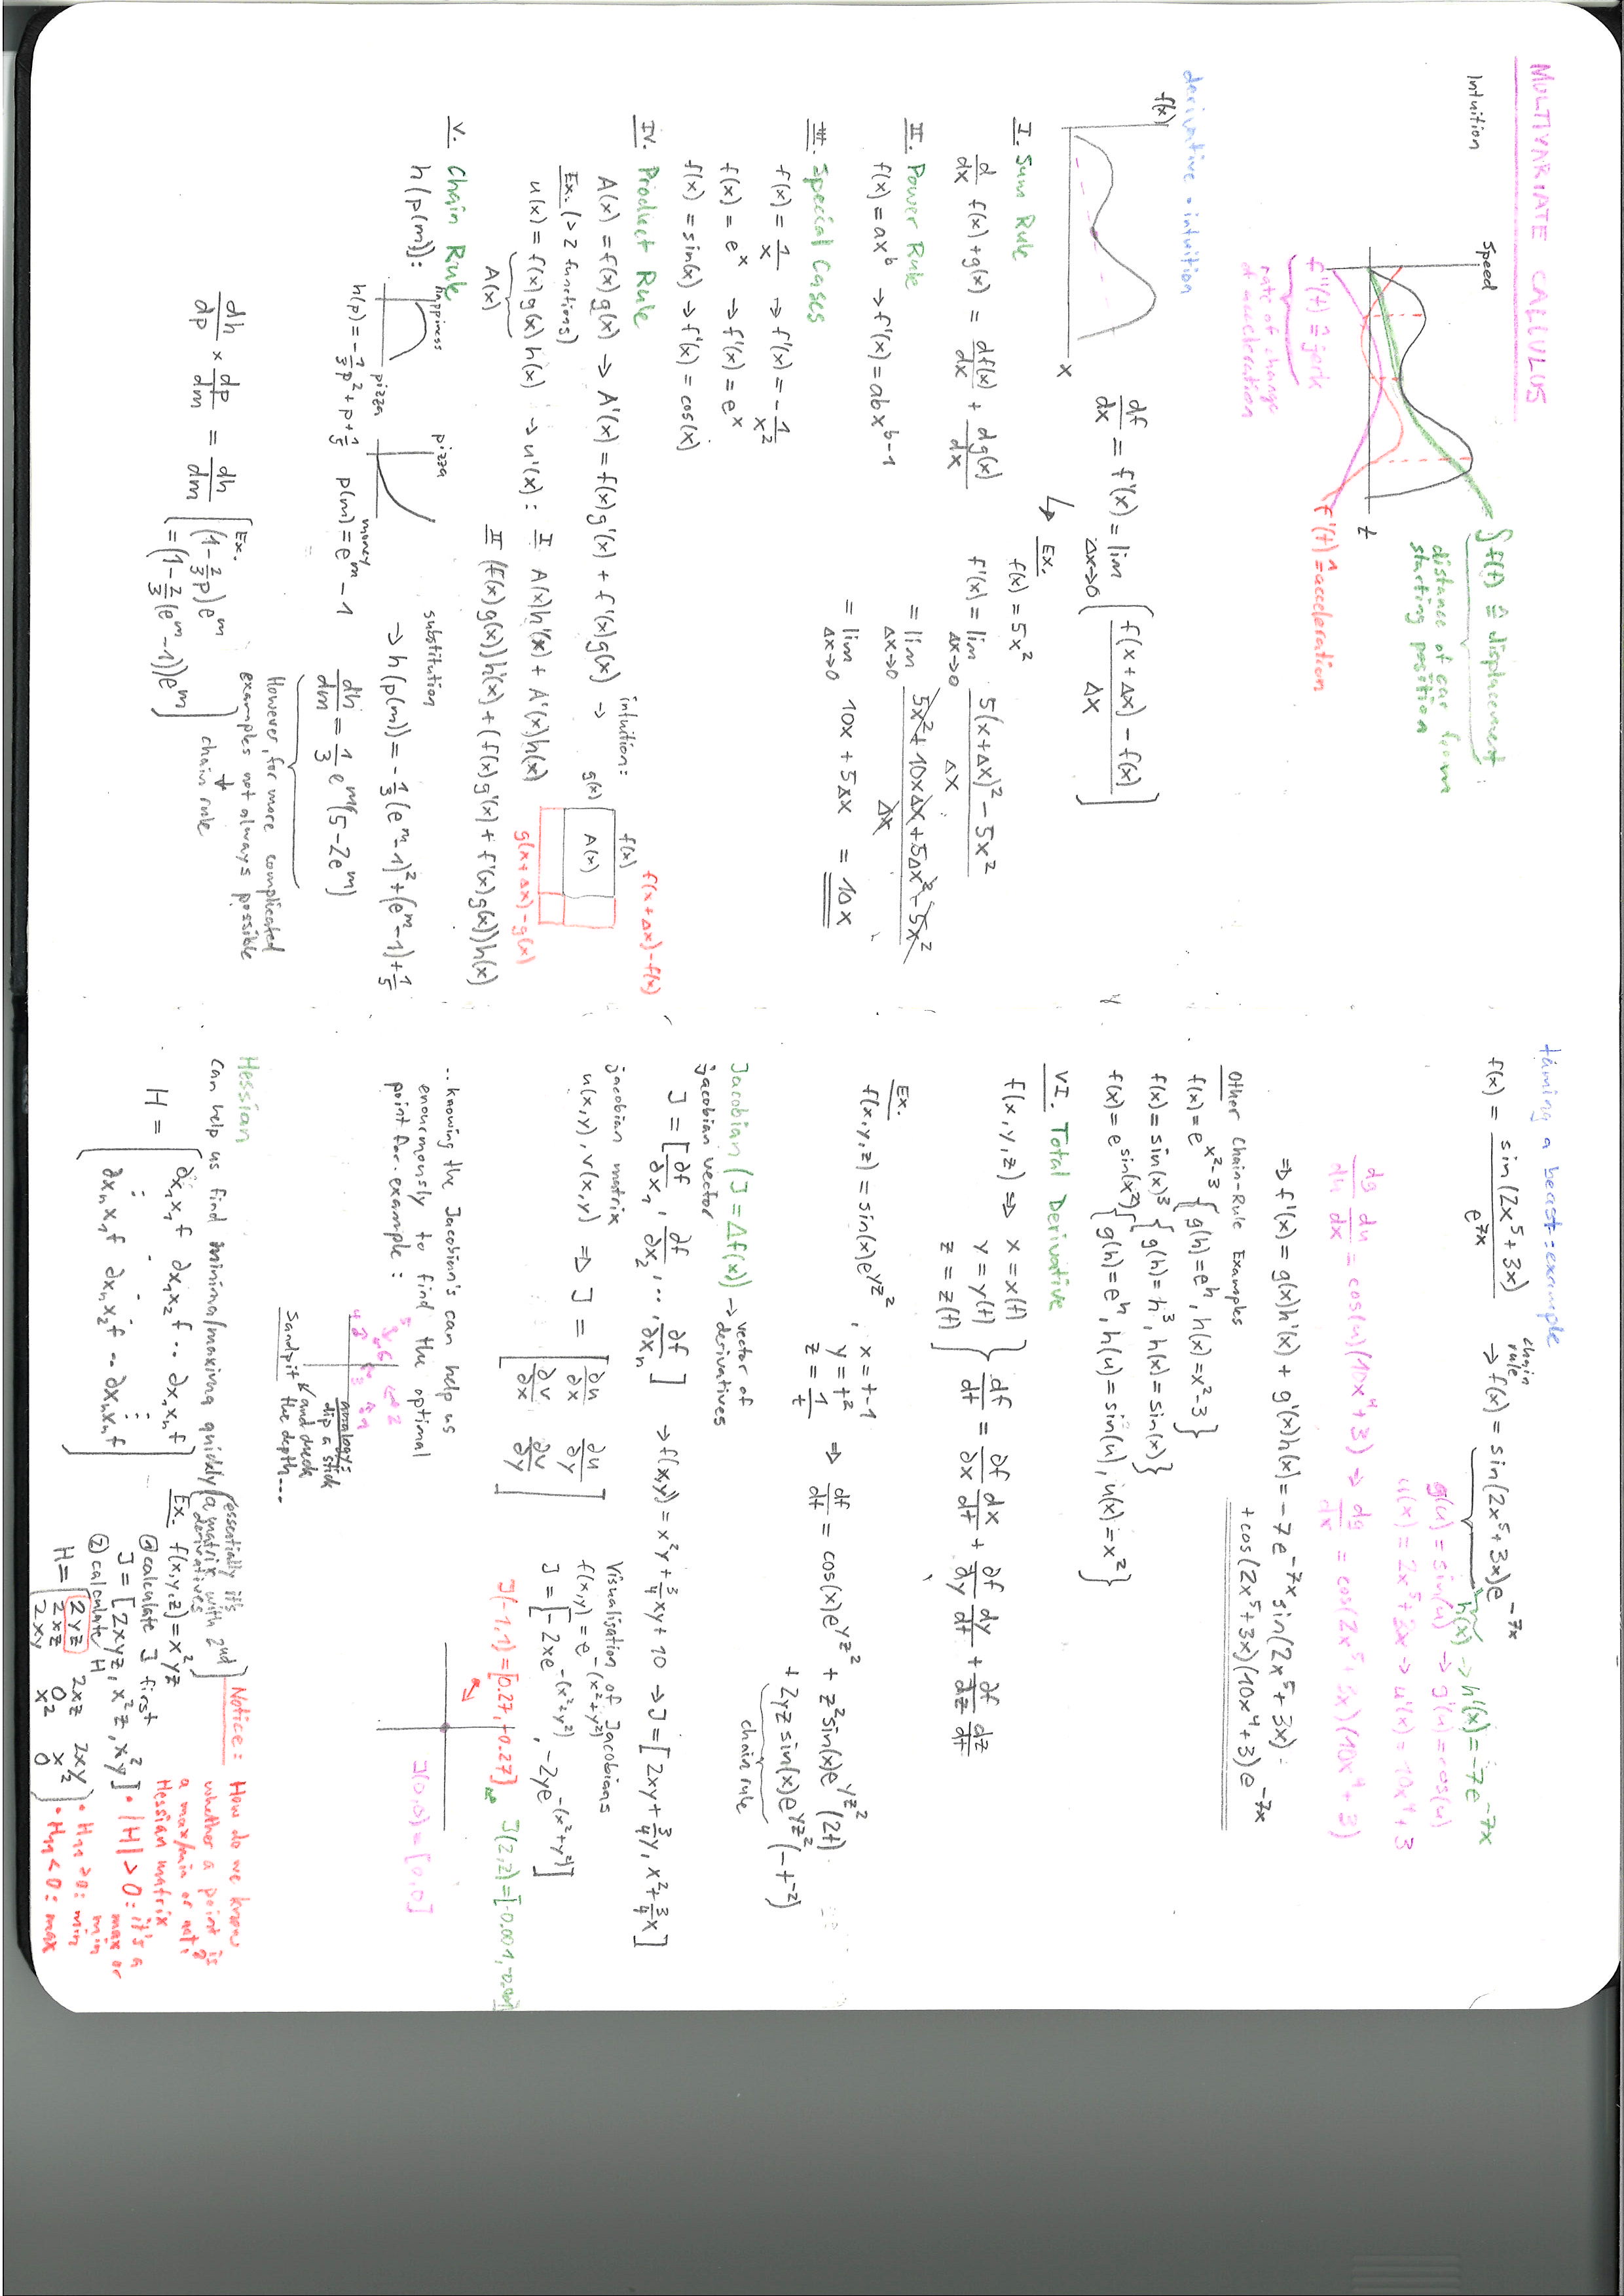 MULTIVARIATE CALCULUS
Intuition
Speed
∫f(t) ≙ displacement
distance of car from
starting position
t
f'(t) ≙ acceleration
f''(t) ≙ jerk
rate of change
of acceleration
derivative - intuition
f(x)
x
df/dx = f'(x) = lim Δx→0 [ (f(x+Δx) - f(x)) / Δx ]
↳ Ex.
f(x) = 5x²
f'(x) = lim Δx→0 (5(x+Δx)² - 5x²) / Δx
= lim Δx→0 (5x² + 10xΔx + 5Δx² - 5x²) / Δx
= lim Δx→0 10x + 5Δx = 10x
I. Sum Rule
d/dx f(x)+g(x) = df(x)/dx + dg(x)/dx
II. Power Rule
f(x) = ax^b → f'(x) = abx^(b-1)
III. Special Cases
f(x) = 1/x → f'(x) = -1/x²
f(x) = e^x → f'(x) = e^x
f(x) = sin(x) → f'(x) = cos(x)
IV. Product Rule
A(x) = f(x)g(x) → A'(x) = f(x)g'(x) + f'(x)g(x) → intuition:
f(x+Δx)-f(x)
f(x)
g(x)
A(x)
g(x+Δx)-g(x)
Ex. (>2 functions)
u(x) = f(x)g(x)h(x) → u'(x): I A(x)h'(x) + A'(x)h(x)
A(x)
II (f(x)g(x))h'(x) + (f(x)g'(x) + f'(x)g(x))h(x)
V. Chain Rule
h(p(m)):
happiness
pizza
h(p) = -1/3p² + p + 1/5
pizza
money
p(m) = e^m - 1
substitution
→ h(p(m)) = -1/3(e^m-1)² + (e^m-1) + 1/5
dh/dm = 1/3 e^m(5-2e^m)
However, for more complicated
examples not always possible
↓
chain rule
dh/dp × dp/dm = dh/dm [ Ex.
(1-2/3p)e^m
= (1-2/3(e^m-1))e^m ]
taming a beast: example
f(x) = sin(2x⁵+3x) / e^(7x) chain rule → f(x) = sin(2x⁵+3x)e^(-7x)
h(x) → h'(x) = -7e^(-7x)
g(u) = sin(u) → g'(u) = cos(u)
u(x) = 2x⁵+3x → u'(x) = 10x⁴+3
dg/du du/dx = cos(u)(10x⁴+3) → dg/dx = cos(2x⁵+3x)(10x⁴+3)
⇒ f'(x) = g(x)h'(x) + g'(x)h(x) = -7e^(-7x) sin(2x⁵+3x)
+ cos(2x⁵+3x)(10x⁴+3)e^(-7x)
Other Chain-Rule Examples
f(x) = e^(x²-3) {g(h) = e^h, h(x) = x²-3}
f(x) = sin(x)³ {g(h) = h³, h(x) = sin(x)}
f(x) = e^(sin(x²)) {g(h) = e^h, h(u) = sin(u), u(x) = x²}
VI. Total Derivative
f(x,y,z) ⇒ x = x(t)
y = y(t)
z = z(t)
} df/dt = ∂f/∂x dx/dt + ∂f/∂y dy/dt + ∂f/∂z dz/dt
Ex.
f(x,y,z) = sin(x)e^(yz²), x = t-1
y = t²
z = 1/t
⇒ df/dt = cos(x)e^(yz²) + z²sin(x)e^(yz²)(2t)
+ 2yz sin(x)e^(yz²)(-t^(-2))
chain rule
Jacobian (J = Δf(x)) → vector of
derivatives
jacobian vector
J = [∂f/∂x₁, ∂f/∂x₂, ..., ∂f/∂xₙ] → f(x,y) = x²y + 3/4xy + 10 → J = [2xy + 3/4y, x² + 3/4x]
jacobian matrix
u(x,y), v(x,y) ⇒ J = [∂u/∂x ∂u/∂y
∂v/∂x ∂v/∂y]
Visualisation of Jacobians
f(x,y) = e^(-(x²+y²))
J = [-2xe^(-(x²+y²)), -2ye^(-(x²+y²))]
J(-1,1) = [0.27, -0.27]
J(2,2) = [-0.001, -0.001]
J(0,0) = [0,0]
.. knowing the Jacobian's can help us
enourmously to find the optimal
point for example:
5
6
2
4
3
1
analogy:
dip a stick
and check
the depth...
Sandpit
Hessian
can help us find minima/maxima quickly (essentially it's
a matrix with 2nd
derivatives)
H = [∂x₁x₁f ∂x₁x₂f .. ∂x₁xₙf
⋮ ⋱ ⋮
∂xₙx₁f ∂xₙx₂f .. ∂xₙxₙf]
Ex. f(x,y,z) = x²yz
① calculate J first
J = [2xyz, x²z, x²y]
② calculate H
H = [2yz 2xz 2xy
2xz 0 x²
2xy x² 0]
Notice: How do we know
whether a point is
a max/min or not?
Hessian matrix
• |H| > 0: it's a
max or
min
• H₁₁ > 0: min
• H₁₁ < 0: max